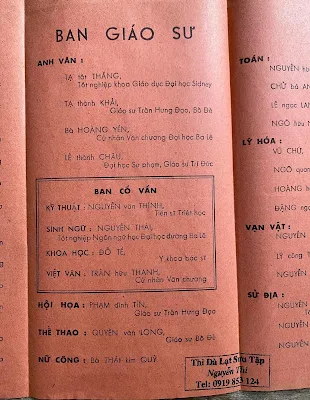 BAN GIÁO SƯ
ANH VĂN :
TẠ tất THẮNG,
Tốt nghiệp khoa Giáo dục Đại học Sidney
TẠ thành KHẢI,
Giáo sư Trần Hưng Đạo, Bồ Đề
Bà HOÀNG YẾN,
Cử nhân Văn chương Đại học Ba Lê
LÊ thành CHÂU,
Đại học Sư phạm, Giáo sư Trí Đức
BAN CỐ VẤN
KỸ THUẬT : NGUYỄN văn THỊNH,
Tiến sĩ Triết học
SINH NGỮ : NGUYỄN THÁI,
Tốt nghiệp Ngôn ngữ học Đại học đường Ba Lê
KHOA HỌC : ĐỖ TẾ,
Y khoa bác sĩ
VIỆT VĂN : TRẦN hữu THANH,
Cử nhân Văn chương
HỘI HỌA : PHẠM đình TÍN,
Giáo sư Trần Hưng Đạo
THỂ THAO : QUYỀN văn LONG,
Giáo sư Bồ Đề
NỮ CÔNG : Bà THÁI kim QUÝ.
TOÁN :
NGUYỄN
CHỮ bá
LÊ ngọc
NGÔ hữu
LÝ HÓA :
VŨ CHỨ,
NGÔ
HOÀNG
ĐẶNG
VẠN VẬT :
NGUYỄN
LÝ công
SỬ ĐỊA :
Thi Đà Lạt Sưu Tập
Nguyễn Thi
Tel: 0919 853 124